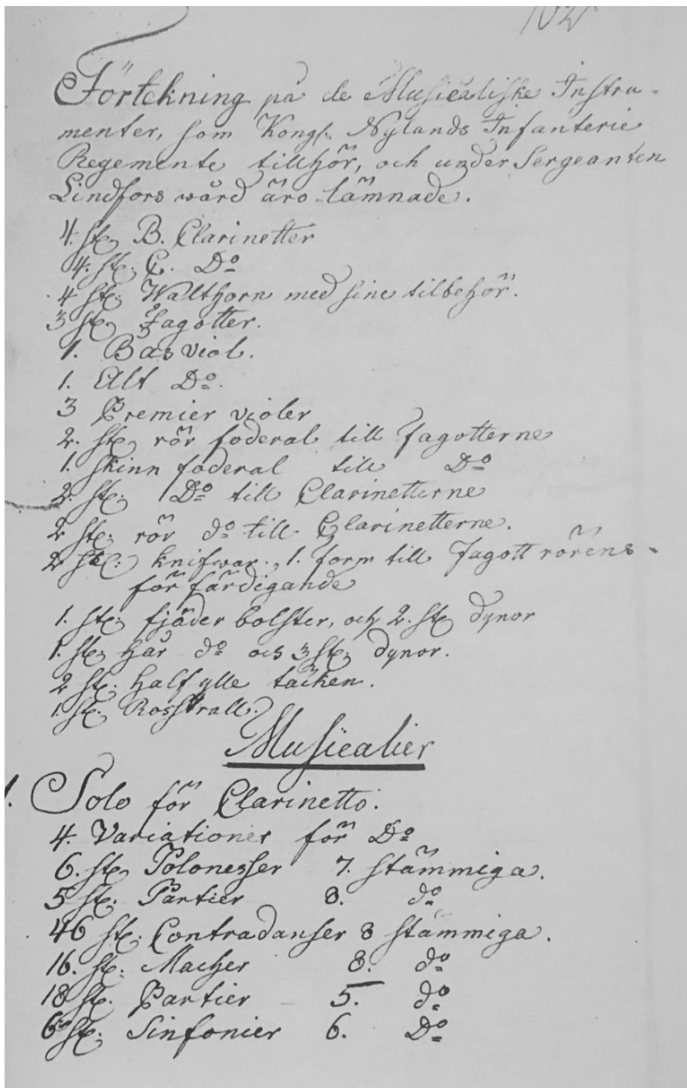 102
Förtekning på de Musicaliske Instru-
menter, som Kongl. Nylands Infanterie
Regemente tillhör, och under Sergeanten
Lindfors wård äro lämnade.
4. st. B. Clarinetter
4. st. C. Do
4 st. Walthorn med sine tilbehör.
3 st. Fagotter.
1. Bas viol.
1. Alt Do.
3 Premier violer
2. st. rör foderal till Fagotterne
1. Skinn foderal till Do
2. st. Do till Clarinetterne
2 st. rör do till Clarinetterne.
2 st. knifwar, 1. form till Fagott rörens
för färdigande
1. st. fjäder bolster, och 2. st. dynor
1. st. hår do och 3 st. dynor.
2 st. half ylle täcken.
1. st. Rosstrall.
Musicalier
1. Solo för Clarinetto.
4. Variationer för Do
6. st. Polonesser 7. stämmiga.
5 st. Partier 8. do
46 st. Contradanser 8 stämmiga.
16. st. Marcher 8. do
18 st. Partier 5. do
6 st. Sinfonier 6. Do